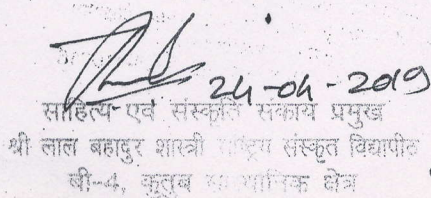 24-04-2019
साहित्य एवं संस्कृति संकाय प्रमुख
श्री लाल बहादुर शास्त्री राष्ट्रिय संस्कृत विद्यापीठ
बी-4, कुतुब क्षेत्र